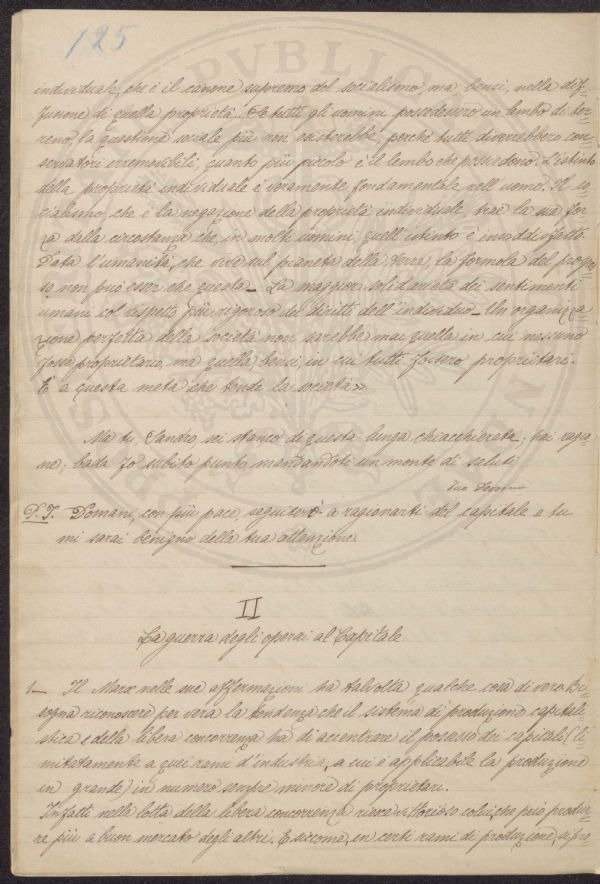 125
individuale, che è il canone supremo del socialismo, ma bensì, nella dif-
fusione di quella proprietà. Se tutti gli uomini possedessero un lembo di ter-
reno, la questione sociale più non esisterebbe, perchè tutti diverrebbero con-
servatori irremovibili, quanto più piccolo è il lembo che possiedono. L'istinto
della proprietà individuale è veramente fondamentale nell'uomo. Il so-
cialismo, che è la negazione della proprietà individuale, trae la sua for-
za dalla circostanza che, in molti uomini, quell'istinto è insoddisfatto.
Data l'umanità, che vive sul pianeta della terra, la formola del progres-
so non può esser che questa — La maggior solidarietà dei sentimenti
umani col rispetto più rigoroso dei diritti dell'individuo. Un'organizza-
zione perfetta della società non sarebbe mai quella in cui nessuno
fosse proprietario, ma quella bensì, in cui tutti fossero proprietari.
E a questa meta che tende la società».
Ma tu, Sandro, sei stanco di questa lunga chiacchierata, hai ragio-
ne; bada fo subito punto, mandandoti un monte di saluti
tuo
P.S. Domani, con più pace, seguiterò a ragionarti del capitale e tu
mi sarai benigno della tua attenzione.
II
La guerra degli operai al Capitale
1— Il Marx nelle sue affermazioni ha talvolta qualche cosa di vero. Bi-
sogna riconoscere per vera la tendenza che il sistema di produzione capitali-
stica e della libera concorrenza ha di accentrare il possesso dei capitali (li-
mitatamente a quei rami d'industria, a cui è applicabile la produzione
in grande) in numero sempre minore di proprietari.
Infatti nella lotta della libera concorrenza riesce vittorioso colui, che può produr-
re più a buon mercato degli altri. E siccome, in certi rami di produzione, si pro-
PVBLIC